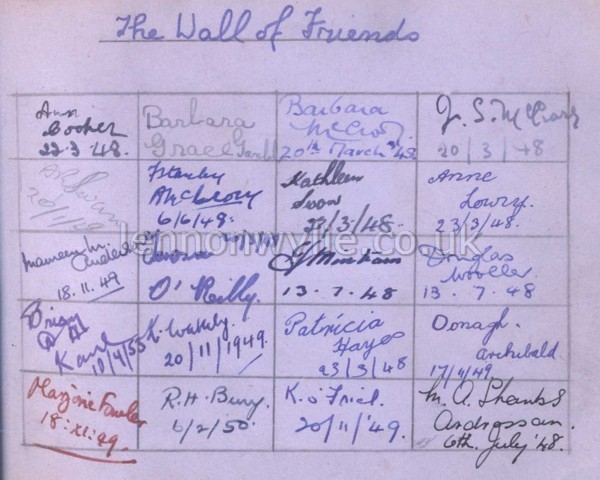 The Wall of Friends
Ann
22.3.'48.
Barbara
Grace
Barbara
20th March '48
J. S. McCrory
20/3/48
20/1/49
Stanley
McCrory
6/6/48.
Kathleen
/3/48.
Anne
Lowry.
23/3/48.
lennonwylie.co.uk
Maureen M.
18.11.49
O'Reilly.
13.7.48
Douglas
Wooller
13.7.48
Brian
Kane
10/4/55
K. Wakely.
20/11/1949.
Patricia
Hayes
23/3/48
Oonagh.
Archibald.
17/11/49.
Marjorie Fowler
18.XI.49
R. H. Bury.
6/2/50.
K. o'Friel.
20/11/'49.
M. A. Shanks
Ardrossan.
6th July '48.